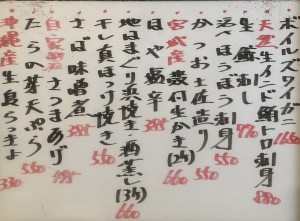 ボイルズワイガニ 1650
天然生インド鮪トロ刺身 880
生鯨刺し 770
活べほうぼう刺身 550
かつお土佐造り
宮城産殻付生かき(2ケ) 660
ほや塩辛 385
地はまぐり浜焼き・酒蒸し(3ケ) 660
干し真ほっけ焼き 550
さば味噌煮 385
自家製さつまあげ 495
たらの芽天ぷら 550
沖縄産生島らっきょ 330